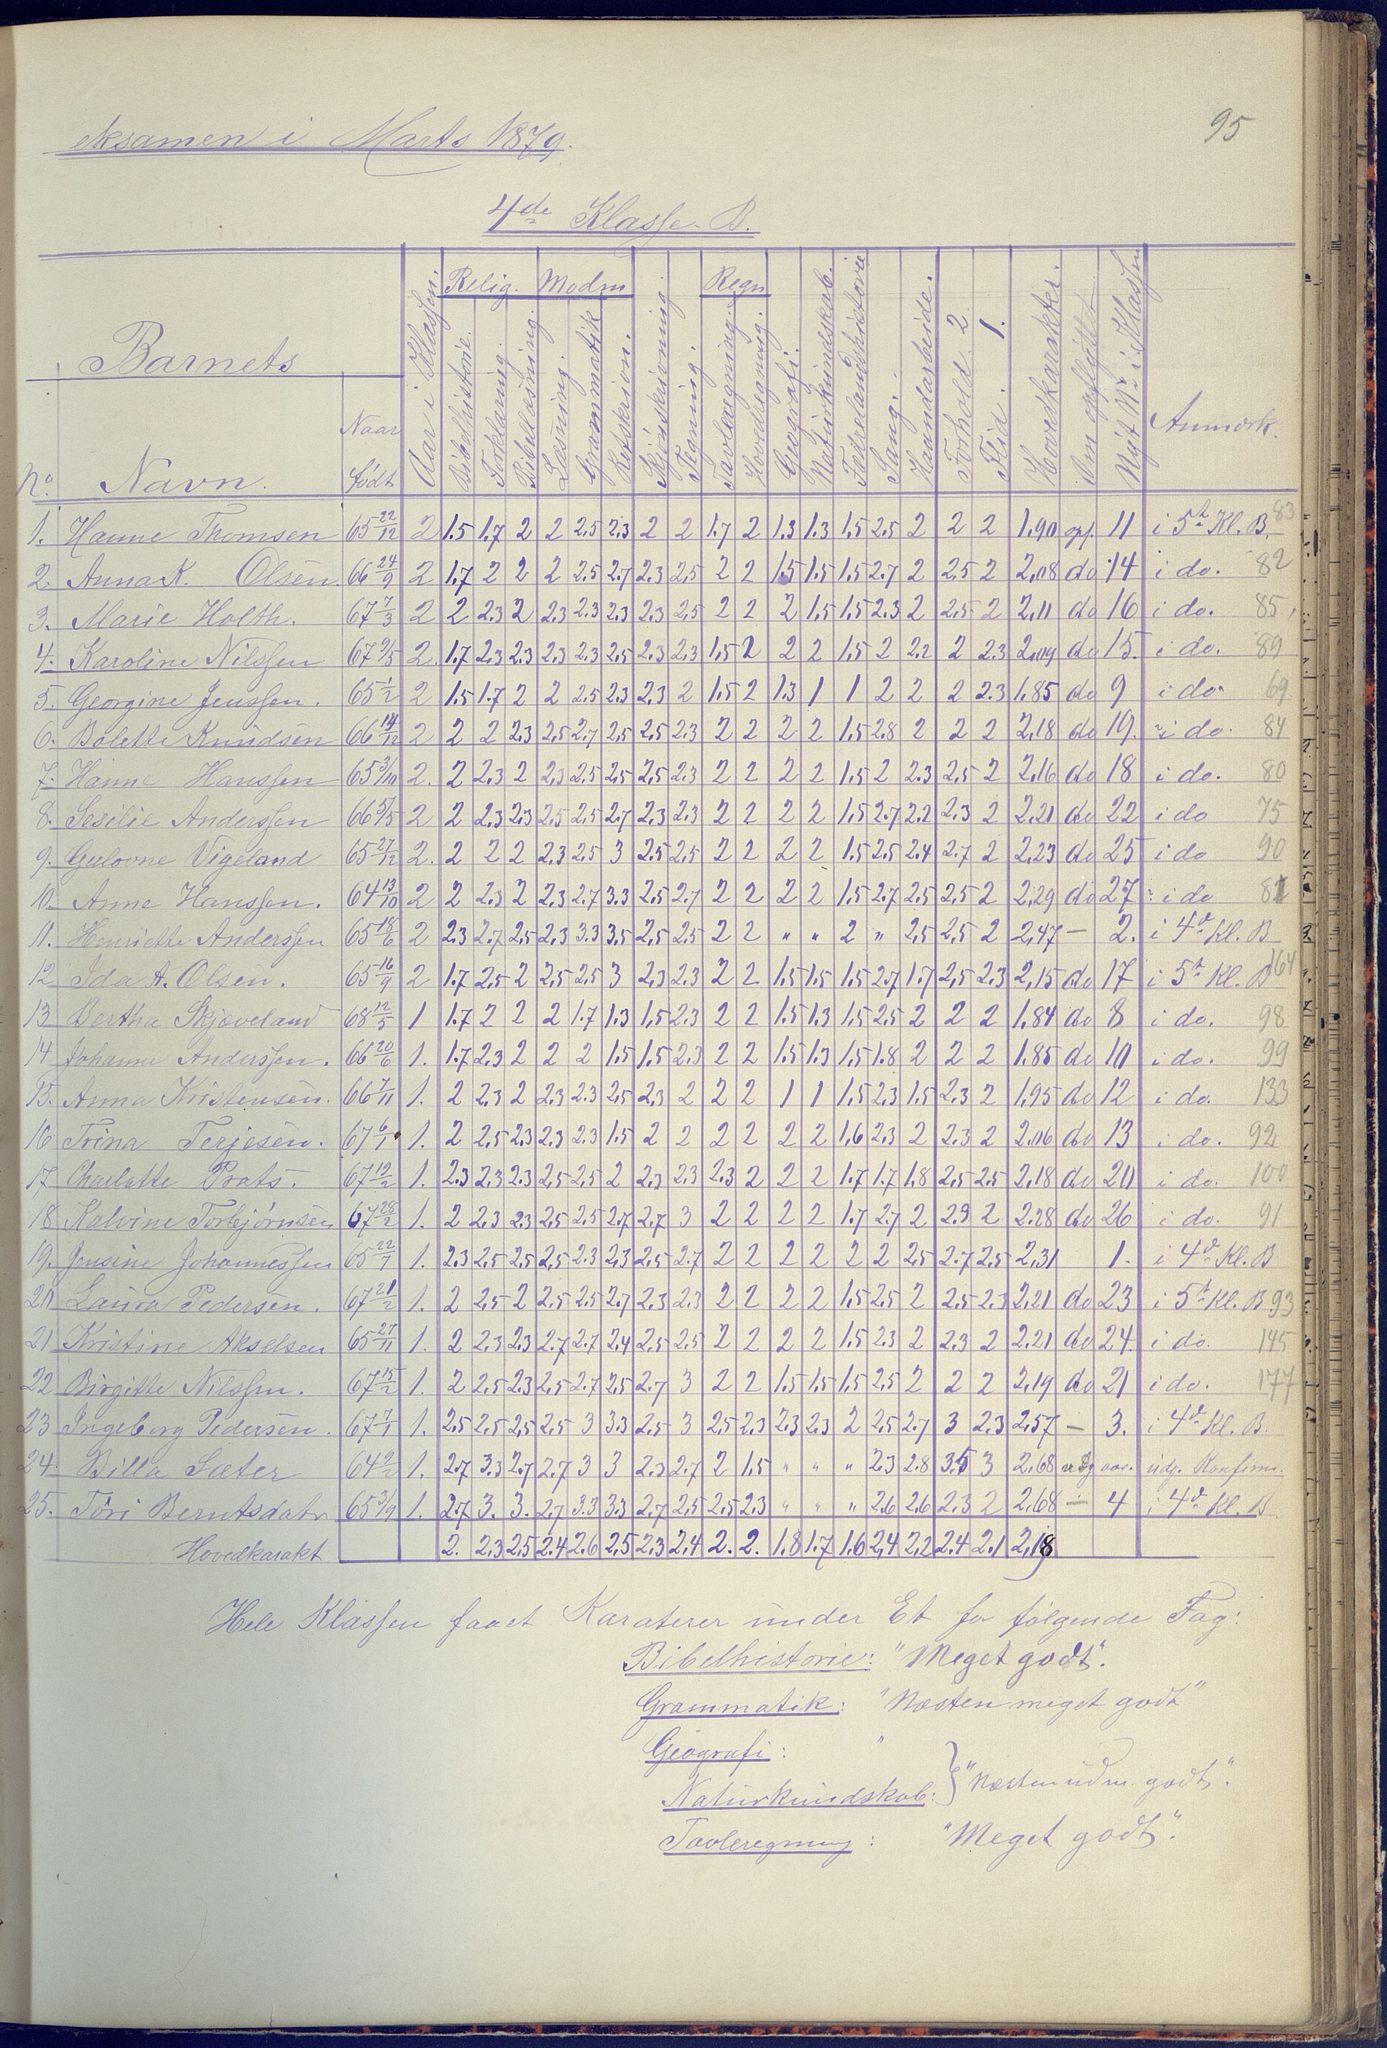 95
eksamen i Marts 1879.
4de Klasse B.
Barnets
No. Navn. Naar født Aar i Klassen. Relig. Bibelhistorie. Forklaring. Bibellæsning. Modm Læsning. Grammatik Retskrivn. Skjönskrivning. Tegning. Regn Tavleregning. Hovedregning. Geografi. Naturkundskab. Fædrelandshistorie Sang. Haandarbeide. Forhold. 2 Flid. 1. Hovedkarakter. Om opflyttet Nyt No i Klassen Anmærk.
1. Hanne Thomsen 65 22/12 2 1.5 1.7 2 2 2.5 2.3 2 2 1.7 2 1.3 1.3 1.5 2.5 2 2 2 1,90 op. 11 i 5t Kl. B. 83
2. Anna K. Olsen. 66 24/9 2 1.7 2 2 2 2.5 2.7 2.3 2.5 2 2 1.5 1.5 1.5 2.7 2 2.5 2 2,08 do 14 i do. 82
3. Marie Holth. 67 7/3 2 2 2.3 2 2.3 2.3 2.3 2.3 2.5 2 2 2 1.5 1.5 2.3 2 2.5 2 2,11 do 16 i do. 85
4. Karoline Nilssen 67 9/5 2 1.7 2.3 2.3 2.3 2.3 2.5 2.3 2.3 1.5 2 2 2 1.5 2 2.2 2 2.3 2,09 do 15. i do. 89
5. Georgine Jenssen. 65 1/2 2 1.5 1.7 2 2 2.5 2.3 2.3 2 1.5 2 1.3 1 1 2 2 2 2.3 1,85 do 9 i do. 69.
6. Bolette Knudsen 66 14/12 2 2 2 2.3 2.5 2.7 2.5 2.5 2.3 2 2 2 2 1.5 2.8 2 2 2 2,18 do 19. i do. 84
7. Hanne Hanssen 65 3/10 2. 2 2.3 2 2.3 2.5 2.5 2.5 2.3 2 2 2 2 1.5 2 2.3 2.5 2 2,16 do 18 i do. 80
8. Sesilie Anderssen 66 5/5 2 2 2.3 2.3 2.5 2.5 2.7 2.3 2.3 2 2 2 2 1.5 2.7 2.2 2.3 2 2,21 do 22 i do 75
9. Gulovne Vigeland 65 27/12 2. 2 2 2 2.3 2.5 3 2.5 2.5 2 2 2 2 1.5 2.5 2.4 2.7 2 2,23 do 25 i do 90
10. Anne Hanssen. 64 13/10 2 2 2.3 2 2.3 2.7 3.3 2.5 2.7 2 2 2 2 1.5 2.7 2.5 2.5 2 2,29 do 27 i do 81
11. Henriette Anderssen 65 18/6 2 2.3 2.7 2.5 2.3 3.3 3.5 2.5 2.5 2 2 " " 2 " 2.5 2.5 2 2,47 — 2. i 4d Kl. B
12 Ida A. Olsen. 65 16/9 2 1.7 2.5 2 2.5 2.5 3 2.3 2.3 2 2 1.5 1.5 1.5 2.7 1.7 2.5 2.3 2,15 do 17 i 5t Kl. B 164
13 Bertha Skjæveland 68 12/5 1 1.7 2 2 2 1.7 1.3 1.5 2.3 2 2 1.5 1.3 1.5 2.5 2 2 2 1,84 do 8 i do. 98
14 Johanne Anderssen. 66 20/6 1. 1.7 2.3 2 2 2 1.5 1.5 2.3 2 2 1.5 1.3 1.5 1.8 2 2 2 1,85 do 10 i do. 99
15. Anna Kristensen. 66 7/11 1. 2 2.3 2 2.3 2.3 2.5 2.3 2 2 2 1 1 1.5 2.3 1.5 2.3 2 1,95 do 12 i do. 133
16 Trina Terjesen. 67 6/1 1. 2 2.5 2.3 2.3 2.3 1.5 2 2 2 2 2 2 1.6 2.3 2 2.3 2 2,06 do 13 i do. 92
17. Charlotte Prats. 67 12/2 1. 2.3 2.3 2.3 2.5 2.5 2 2.3 2.3 2.3 2 2 2 1.7 1.7 1.8 2.5 2.5 2,18 do 20 i do. 100
18 Kalvine Torbjørnsen 67 28/2 1. 2 2.3 2.3 2.5 2.5 2.7 2.7 3 2 2 2 2 1.7 2.7 2 2.9 2 2.28 do 26 i do. 91
19. Jensine Johannessen 65 22/7 1. 2.3 2.5 2.5 2.5 2.3 2.3 2.5 2.7 2 2 2 2 2 2 2.5 2.7 2.5 2,31 1. i 4d Kl. B
20 Laura Pedersen. 67 21/2 1. 2 2.5 2 2.5 2.5 2.7 2.3 2.3 2 2 2 2 1.5 2.5 2 2.5 2.3 2,21 do 23 i 5t Kl. B 93
21 Kristine Akselsen 65 27/11 1. 2 2.3 2.3 2.7 2.7 2.4 2.5 2.5 2 2 2 2 1.5 2.3 2 2.3 2 2,21 do 24. i do. 145
22 Birgitte Nilssen. 67 15/2 1. 2 2.5 2.3 2.5 2.7 2.5 2.7 3 2 2 1.5 1.5 1.5 2.5 2 2 2 2,19 do 21 i do. 177
23 Ingeborg Pedersen. 67 7/1 1. 2.5 2.5 2.5 2.5 3 3.3 2.5 3 2.5 2.3 2.3 2.3 2 2.5 2.7 3 2.3 2,57 — 3. i 4d Kl. B.
24. Billa Sæter 64 9/2 1. 2.7 3.3 2.7 2.7 3 3 2.3 2.7 2 1.5 " " " 2.3 2.8 3.5 3 2,68 udg. Konfirm.
25. Töri Berntsdatr 65 3/9 1. 2.7 3. 3. 2.7 3.3 3.3 2.7 2.5 2.5 2.3 " " " 2.6 2.6 2.3 2 2,68 — 4 i 4d Kl. B
Hovedkarakt 2. 2.3 2.5 2.4 2.6 2.5 2.3 2.4 2. 2. 1.8 1.7 1.6 2.4 2.2 2.4 2.1 2,18
Hele Klassen faaet Karaterer under Et for følgende Fag:
Bibelhistorie: "Meget godt".
Grammatik: "Næsten meget godt"
Geografi: "
Naturkundskab: } "Næsten udm. godt".
Tavleregning: "Meget godt".